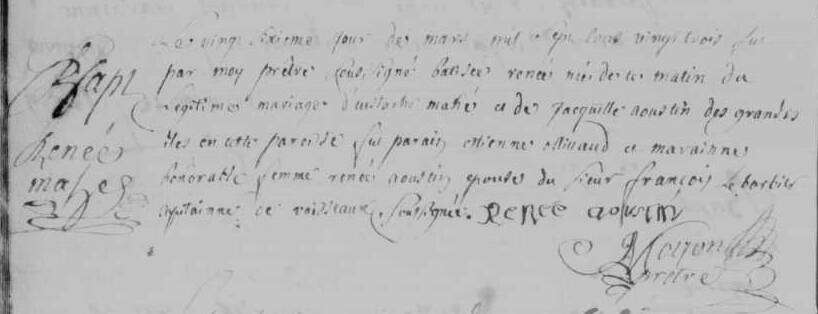 Bapt
Renée
mahé
Le vingt sixieme jour de mars mil sept cens vingt trois fut
par moy prêtre soussigné batisée renée née de ce matin du
légitime mariage d'eustache mahé et de Jacquille aoustin des grandes
isles en cette paroisse fut parain ettienne ollivaud et maraine
honorable femme renée aoustin epouse du sieur françois le barbier
capitainne de vaisseaux, soussignée. RENEE AOUSTIN
prêtre